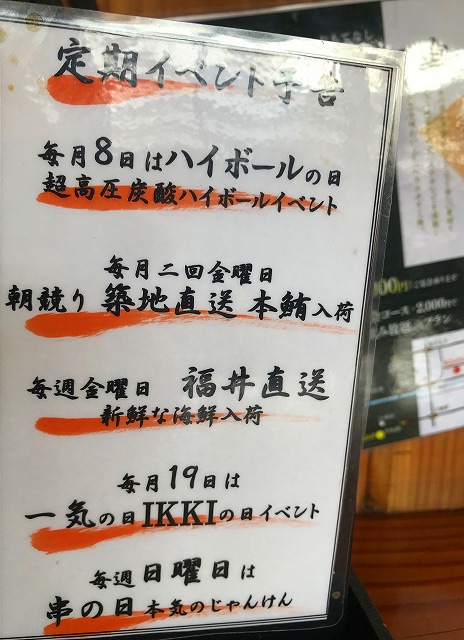 定期イベント予告
毎月8日はハイボールの日
超高圧炭酸ハイボールイベント
毎月二回金曜日
朝競り 築地直送 本鮪入荷
毎週金曜日 福井直送
新鮮な海鮮入荷
毎月19日は
一気の日IKKIの日イベント
毎週日曜日は
串の日 本気のじゃんけん
コース・2,000円で